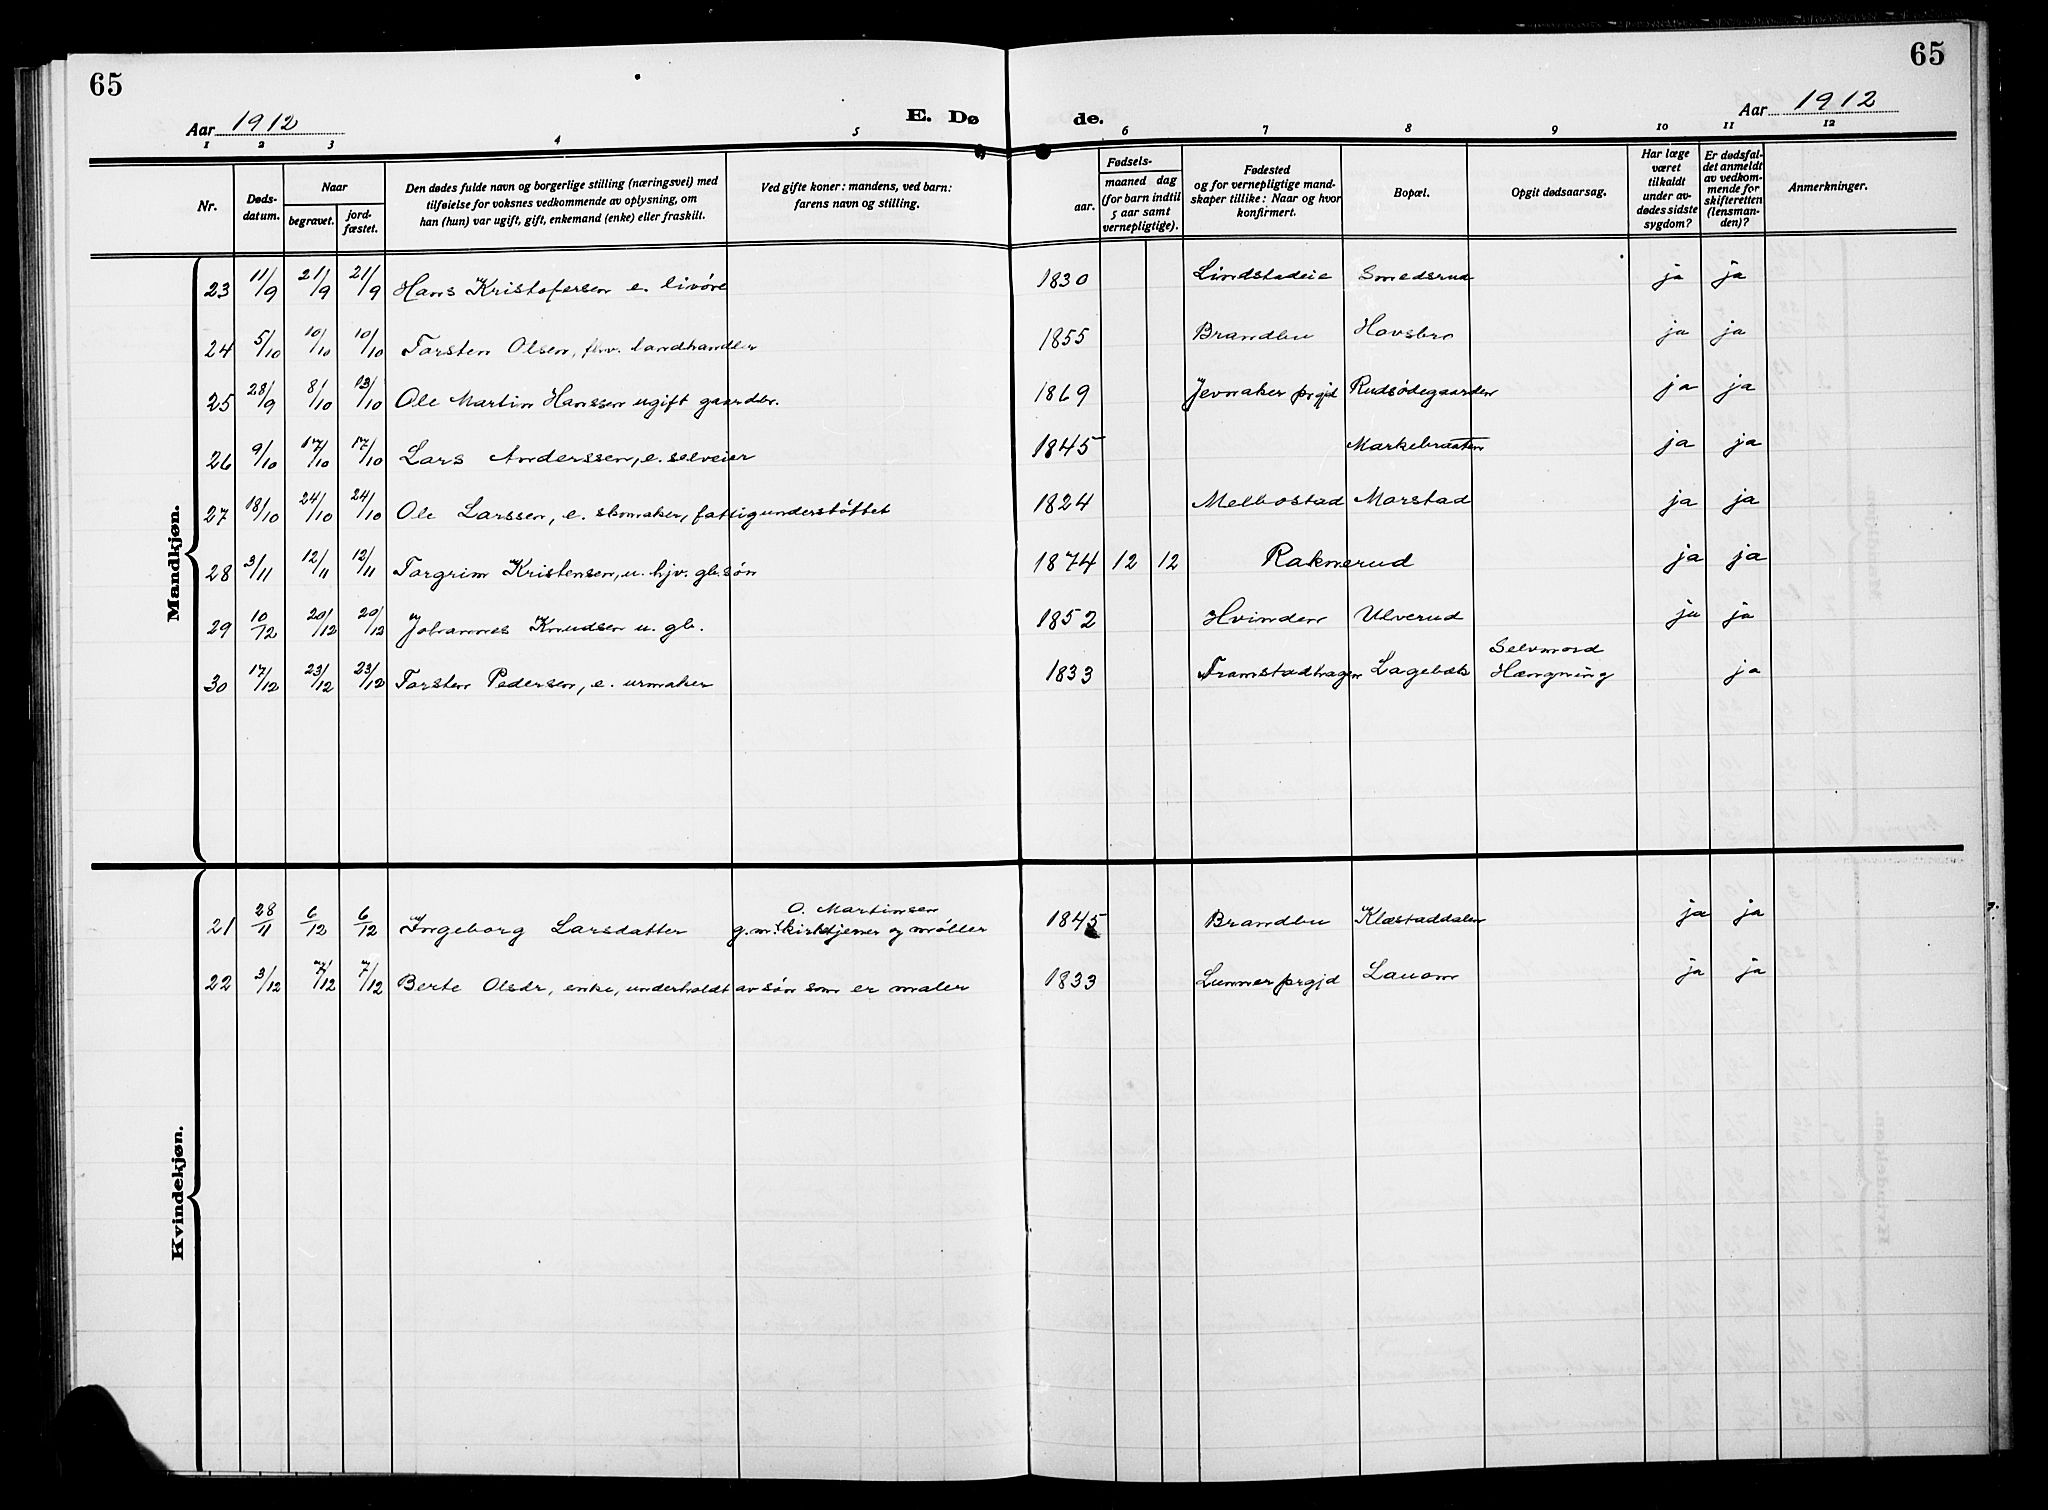 65
65
Aar 1912
E. Dø
de.
Aar 1912
1 2 3 4 5 6 7 8 9 10 11 12
Nr.
Døds-
datum.
Naar
begravet.
jord-
fæstet.
Den dødes fulde navn og borgerlige stilling (næringsvei) med
tilføielse for voksnes vedkommende av oplysning, om
han (hun) var ugift, gift, enkemand (enke) eller fraskilt.
Ved gifte koner: mandens, ved barn:
farens navn og stilling.
Fødsels-
aar.
maaned dag
(for barn indtil
5 aar samt
vernepligtige).
Fødested
og for vernepligtige mand-
skaper tillike: Naar og hvor
konfirmert.
Bopæl.
Opgit dødsaarsag.
Har læge
været
tilkaldt
under av-
dødes sidste
sygdom?
Er dødsfal-
det anmeldt
av vedkom-
mende for
skifteretten
(lensman-
den)?
Anmerkninger.
Mandkjøn.
23 11/9 21/9 21/9 Hans Kristofersen e. livøre 1830 Lindstadeie Smedsrud ja ja
24 5/10 10/10 10/10 Torsten Olsen, fhv. landhandler 1855 Brandbu Hovsbro ja ja
25 28/9 8/10 13/10 Ole Martin Hanssen ugift gaardbr. 1869 Jevnaker prgjd Rudsødegaarden ja ja
26 9/10 17/10 17/10 Lars Anderssen, e. selveier 1845 Markebraaten ja ja
27 18/10 24/10 24/10 Ole Larssen, e. skomaker, fattigunderstøttet 1824 Melbostad Morstad ja ja
28 3/11 12/11 12/11 Torgrim Kristensen, u. hjv. gb. søn 1874 12 12 Raknerud ja ja
29 10/12 20/12 20/12 Johannes Knudsen u. gb. 1852 Hvinden Ulverud ja ja
30 17/12 23/12 23/12 Torsten Pedersen, e. urmaker 1833 Framstadhagen Lagebæk Selvmord
Hængning ja
Kvindekjøn.
21 28/11 6/12 6/12 Ingeborg Larsdatter g.m. O. Martinsen
kirketjener og møller 1845 Brandbu Klæstaddalen ja ja
22 3/12 7/12 7/12 Berte Olsdr, enke, underholdt av søn som er maler 1833 Lunner prgjd Lauom ja ja